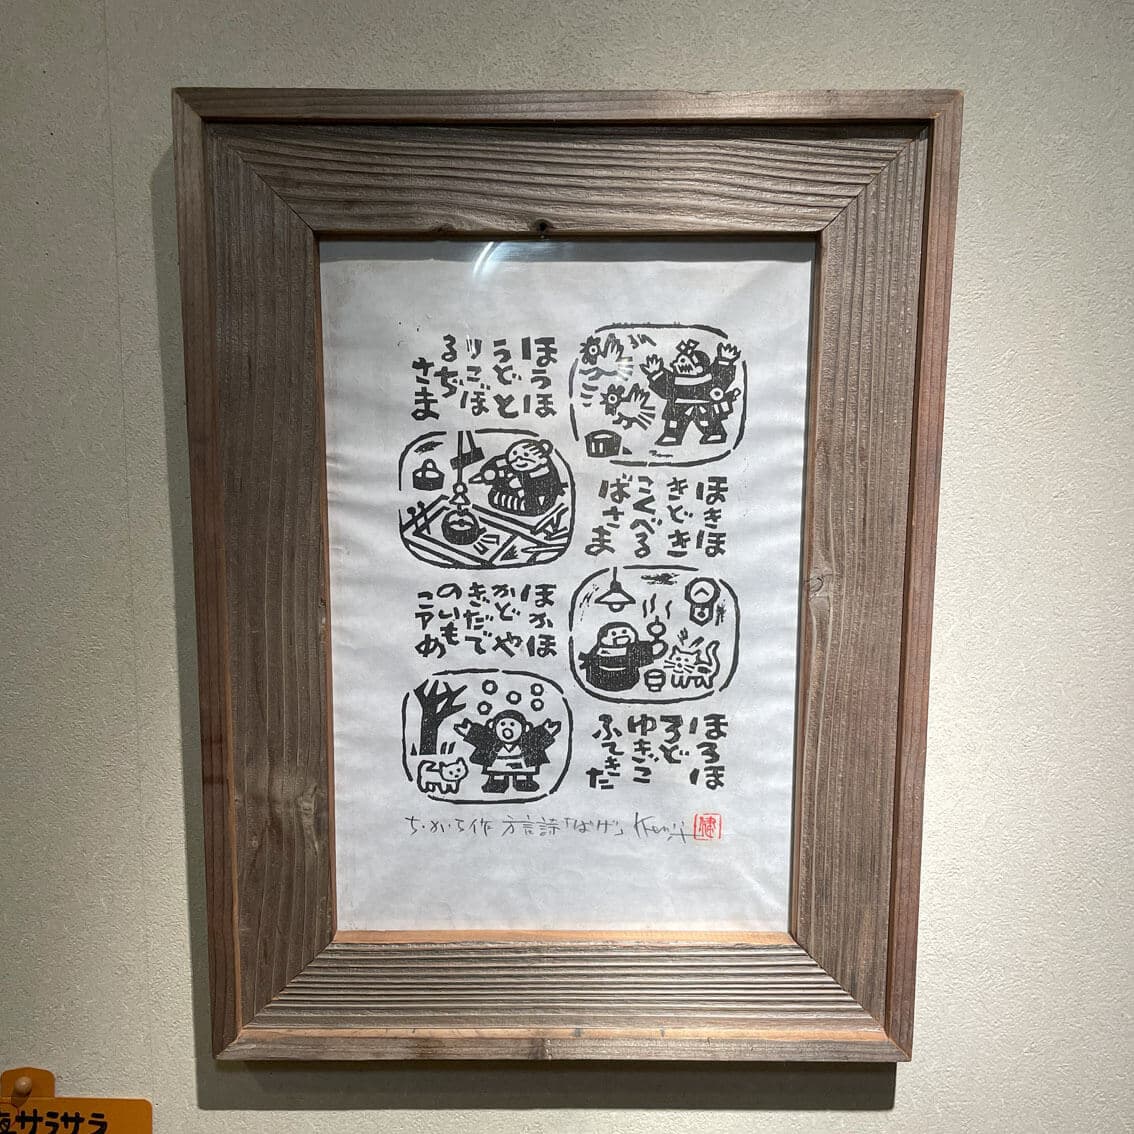 ほうほ
うどと
りこぼ
るぢ
さま
ほきほ
きどき
こくべる
ばさま
ほかほ
かどや
きだで
のいも
こうめ
ほろほ
ろど
ゆきご
ふてきた
ち・から作 方言詩「ばげ」 Kenji 健
サラサラ